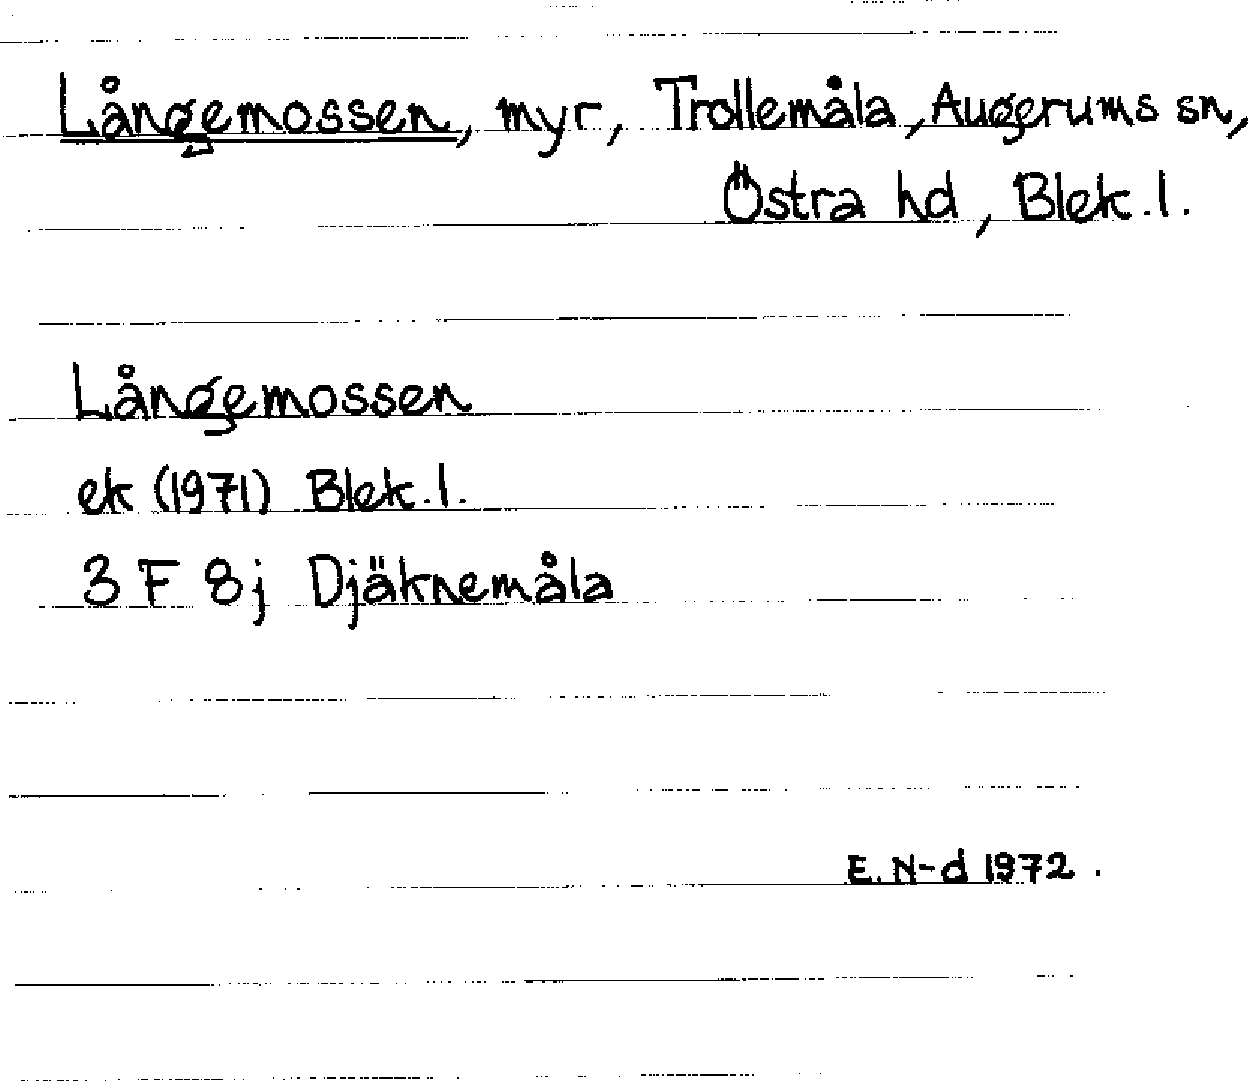 Långemossen, myr, Trollemåla, Augerums sn,
Östra hd, Blek. l.
Långemossen
ek (1971) Blek. l.
3 F 8j Djäknemåla
E. N-d 1972.